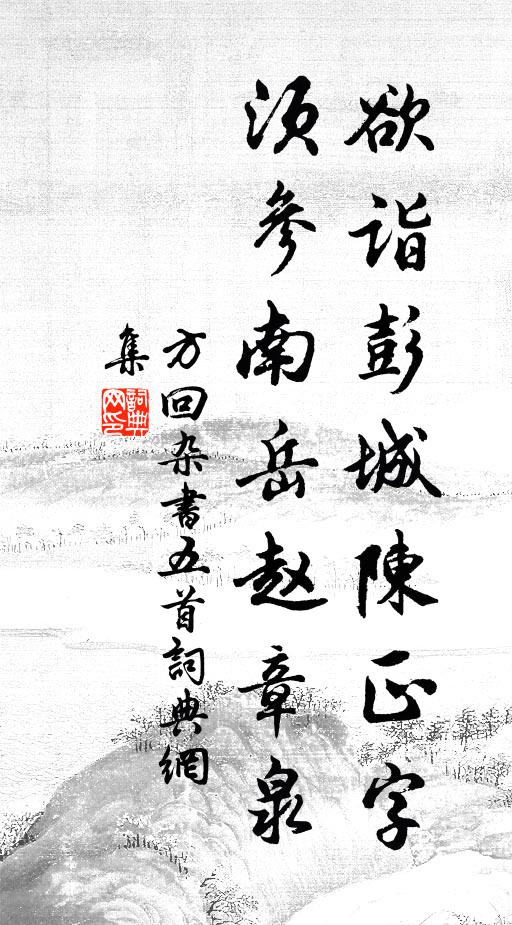 欲诣彭城陳正字
须參南岳赵章泉
方回杂書五首詞典網
集
詞典网印